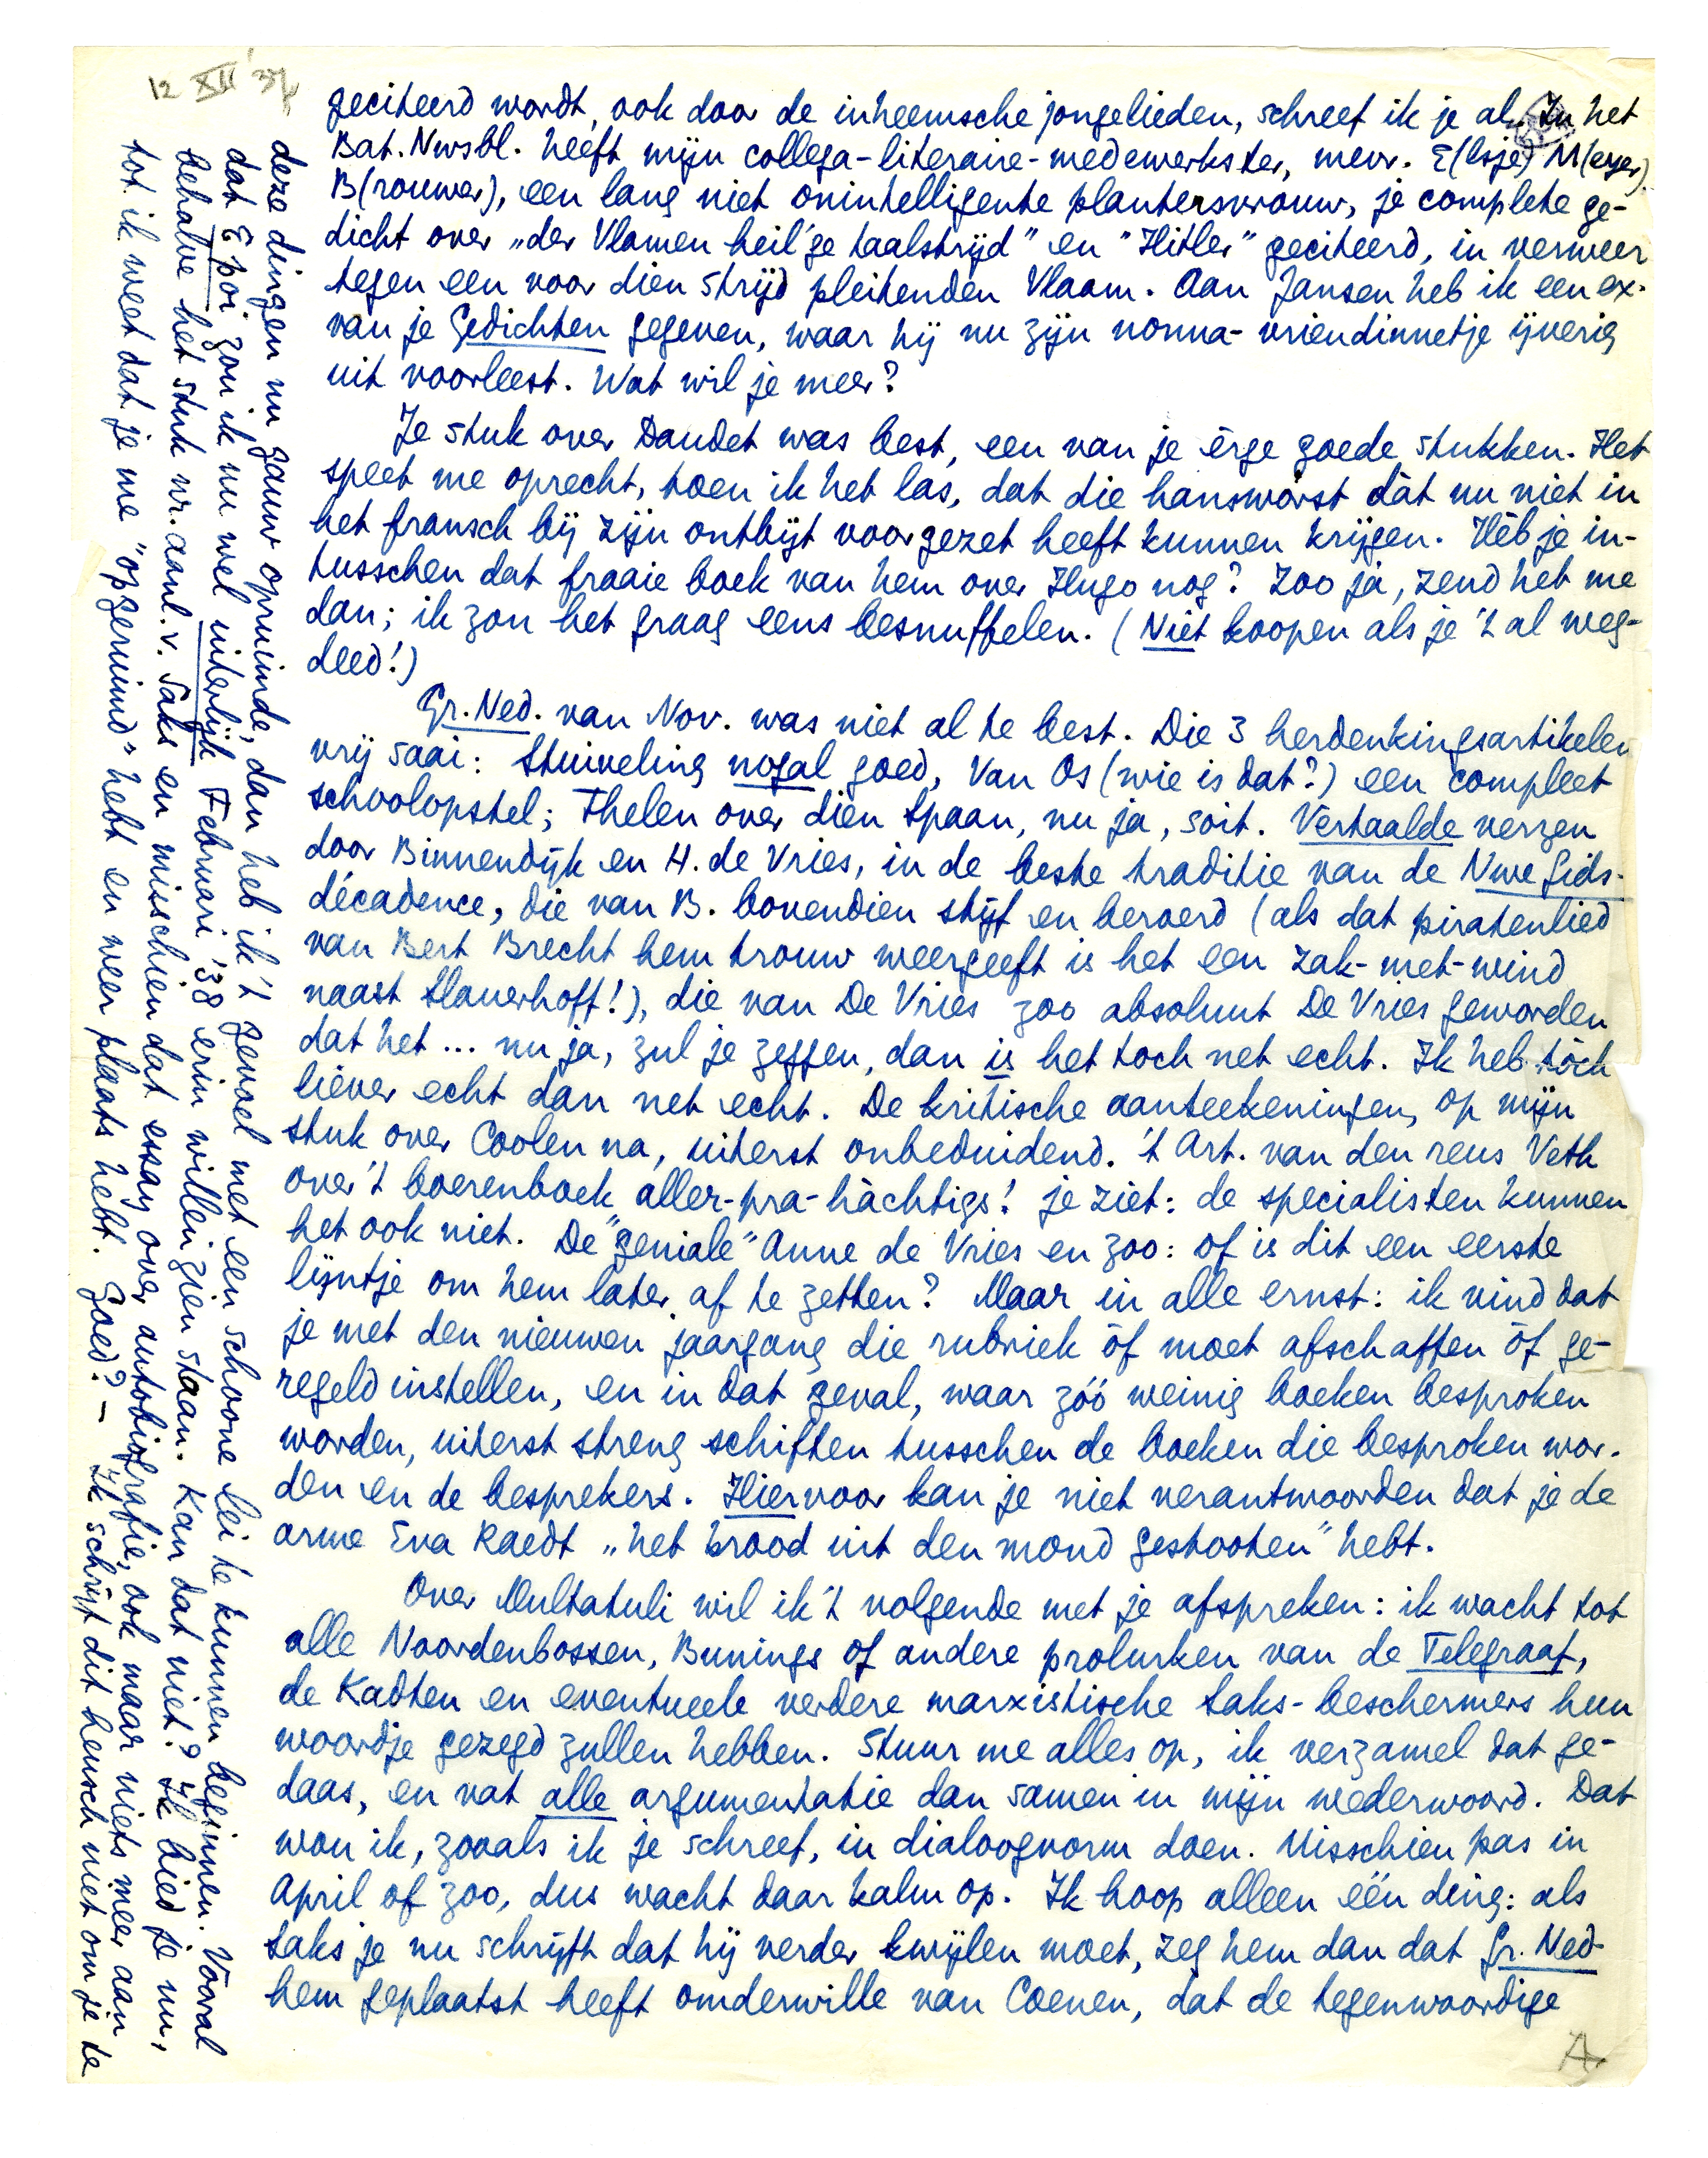 12 XII '37
geciteerd wordt, ook door de inheemsche jongelieden, schreef ik je al. In het
Bat. Nwsbl. heeft mijn collega-literaire-medewerkster, mevr. E(lsje) M(eyer)
B(rouwer), een lang niet onintelligente plantersvrouw, je complete ge-
dicht over „der Vlamen heil'ge taalstrijd” en "Hitler" geciteerd, in verweer
tegen een voor dien strijd pleitenden Vlaam. Aan Jansen heb ik een ex.
van je Gedichten gegeven, waar hij nu zijn nonna-vriendinnetje ijverig
uit voorleest. Wat wil je meer?
Je stuk over Daudet was best, een van je èrge goede stukken. Het
speet me oprecht, toen ik het las, dat die hansworst dàt nu niet in
het fransch bij zijn ontbijt voorgezet heeft kunnen krijgen. Hèb je in-
tusschen dat fraaie boek van hem over Hugo nog? Zoo ja, zend het me
dan; ik zou het graag eens besnuffelen. (Niet koopen als je 't al weg-
deed!)
Gr. Ned. van Nov. was niet al te best. Die 3 herdenkingsartikelen
vrij saai: Stuiveling nogal goed, Van Os (wie is dat?) een compleet
schoolopstel; Thelen over dien Spaan, nu ja, soit. Vertaalde verzen
door Binnendijk en H. de Vries, in de beste traditie van de Nwe Gids-
décadence, die van B. bovendien stijf en beroerd (als dat piratenlied
van Bert Brecht hem trouw weergeeft is het een zak-met-wind
naast Slauerhoff!), die van De Vries zoo absoluut De Vries geworden
dat het ... nu ja, zul je zeggen, dan is het toch net echt. Ik heb tòch
liever echt dan net echt. De kritische aanteekeningen, op mijn
stuk over Coolen na, uiterst onbeduidend. 't Art. van den reus Veth
over 't boerenboek aller-pra-hàchtigs! je ziet: de specialisten kunnen
het ook niet. De "geniale" Anne de Vries en zoo: of is dit een eerste
lijntje om hem later af te zetten? Maar in alle ernst: ik vind dat
je met den nieuwen jaargang die rubriek òf moet afschaffen òf ge-
regeld instellen, en in dat geval, waar zóó weinig boeken besproken
worden, uiterst streng schiften tusschen de boeken die besproken wor-
den en de besprekers. Hiervoor kan je niet verantwoorden dat je de
arme Eva Raedt „het brood uit den mond gestooten” hebt.
Over Multatuli wil ik 't volgende met je afspreken: ik wacht tot
alle Noordenbossen, Bunings of andere prolurken van de Telegraaf,
de Kadten en eventueele verdere marxistische Saks-beschermers hun
woordje gezegd zullen hebben. Stuur me alles op, ik verzamel dat ge-
daas, en vat alle argumentatie dan samen in mijn wederwoord. Dat
wou ik, zooals ik je schreef, in dialoogvorm doen. Misschien pas in
April of zoo, dus wacht daar kalm op. Ik hoop alleen één ding: als
Saks je nu schrijft dat hij verder kwijlen moet, zeg hem dan dat Gr. Ned.
hem geplaatst heeft omderwille van Coenen, dat de tegenwoordige
deze dingen nu gauw opruimde, dan heb ik 't gevoel met een schoone lei te kunnen beginnen. Vooral
dat E poi zou ik nu wel uiterlijk Februari '38 erin willen zien staan. Kan dat niet? Ik bied je nu,
behalve het stuk nr. aanl. v. Saks en misschien dat essay over autobiografie, ook maar niets meer aan
tot ik weet dat je me "opgeruimd" hebt en weer plaats hebt. Goed? — Ik schrijf dit heusch niet om je te
A